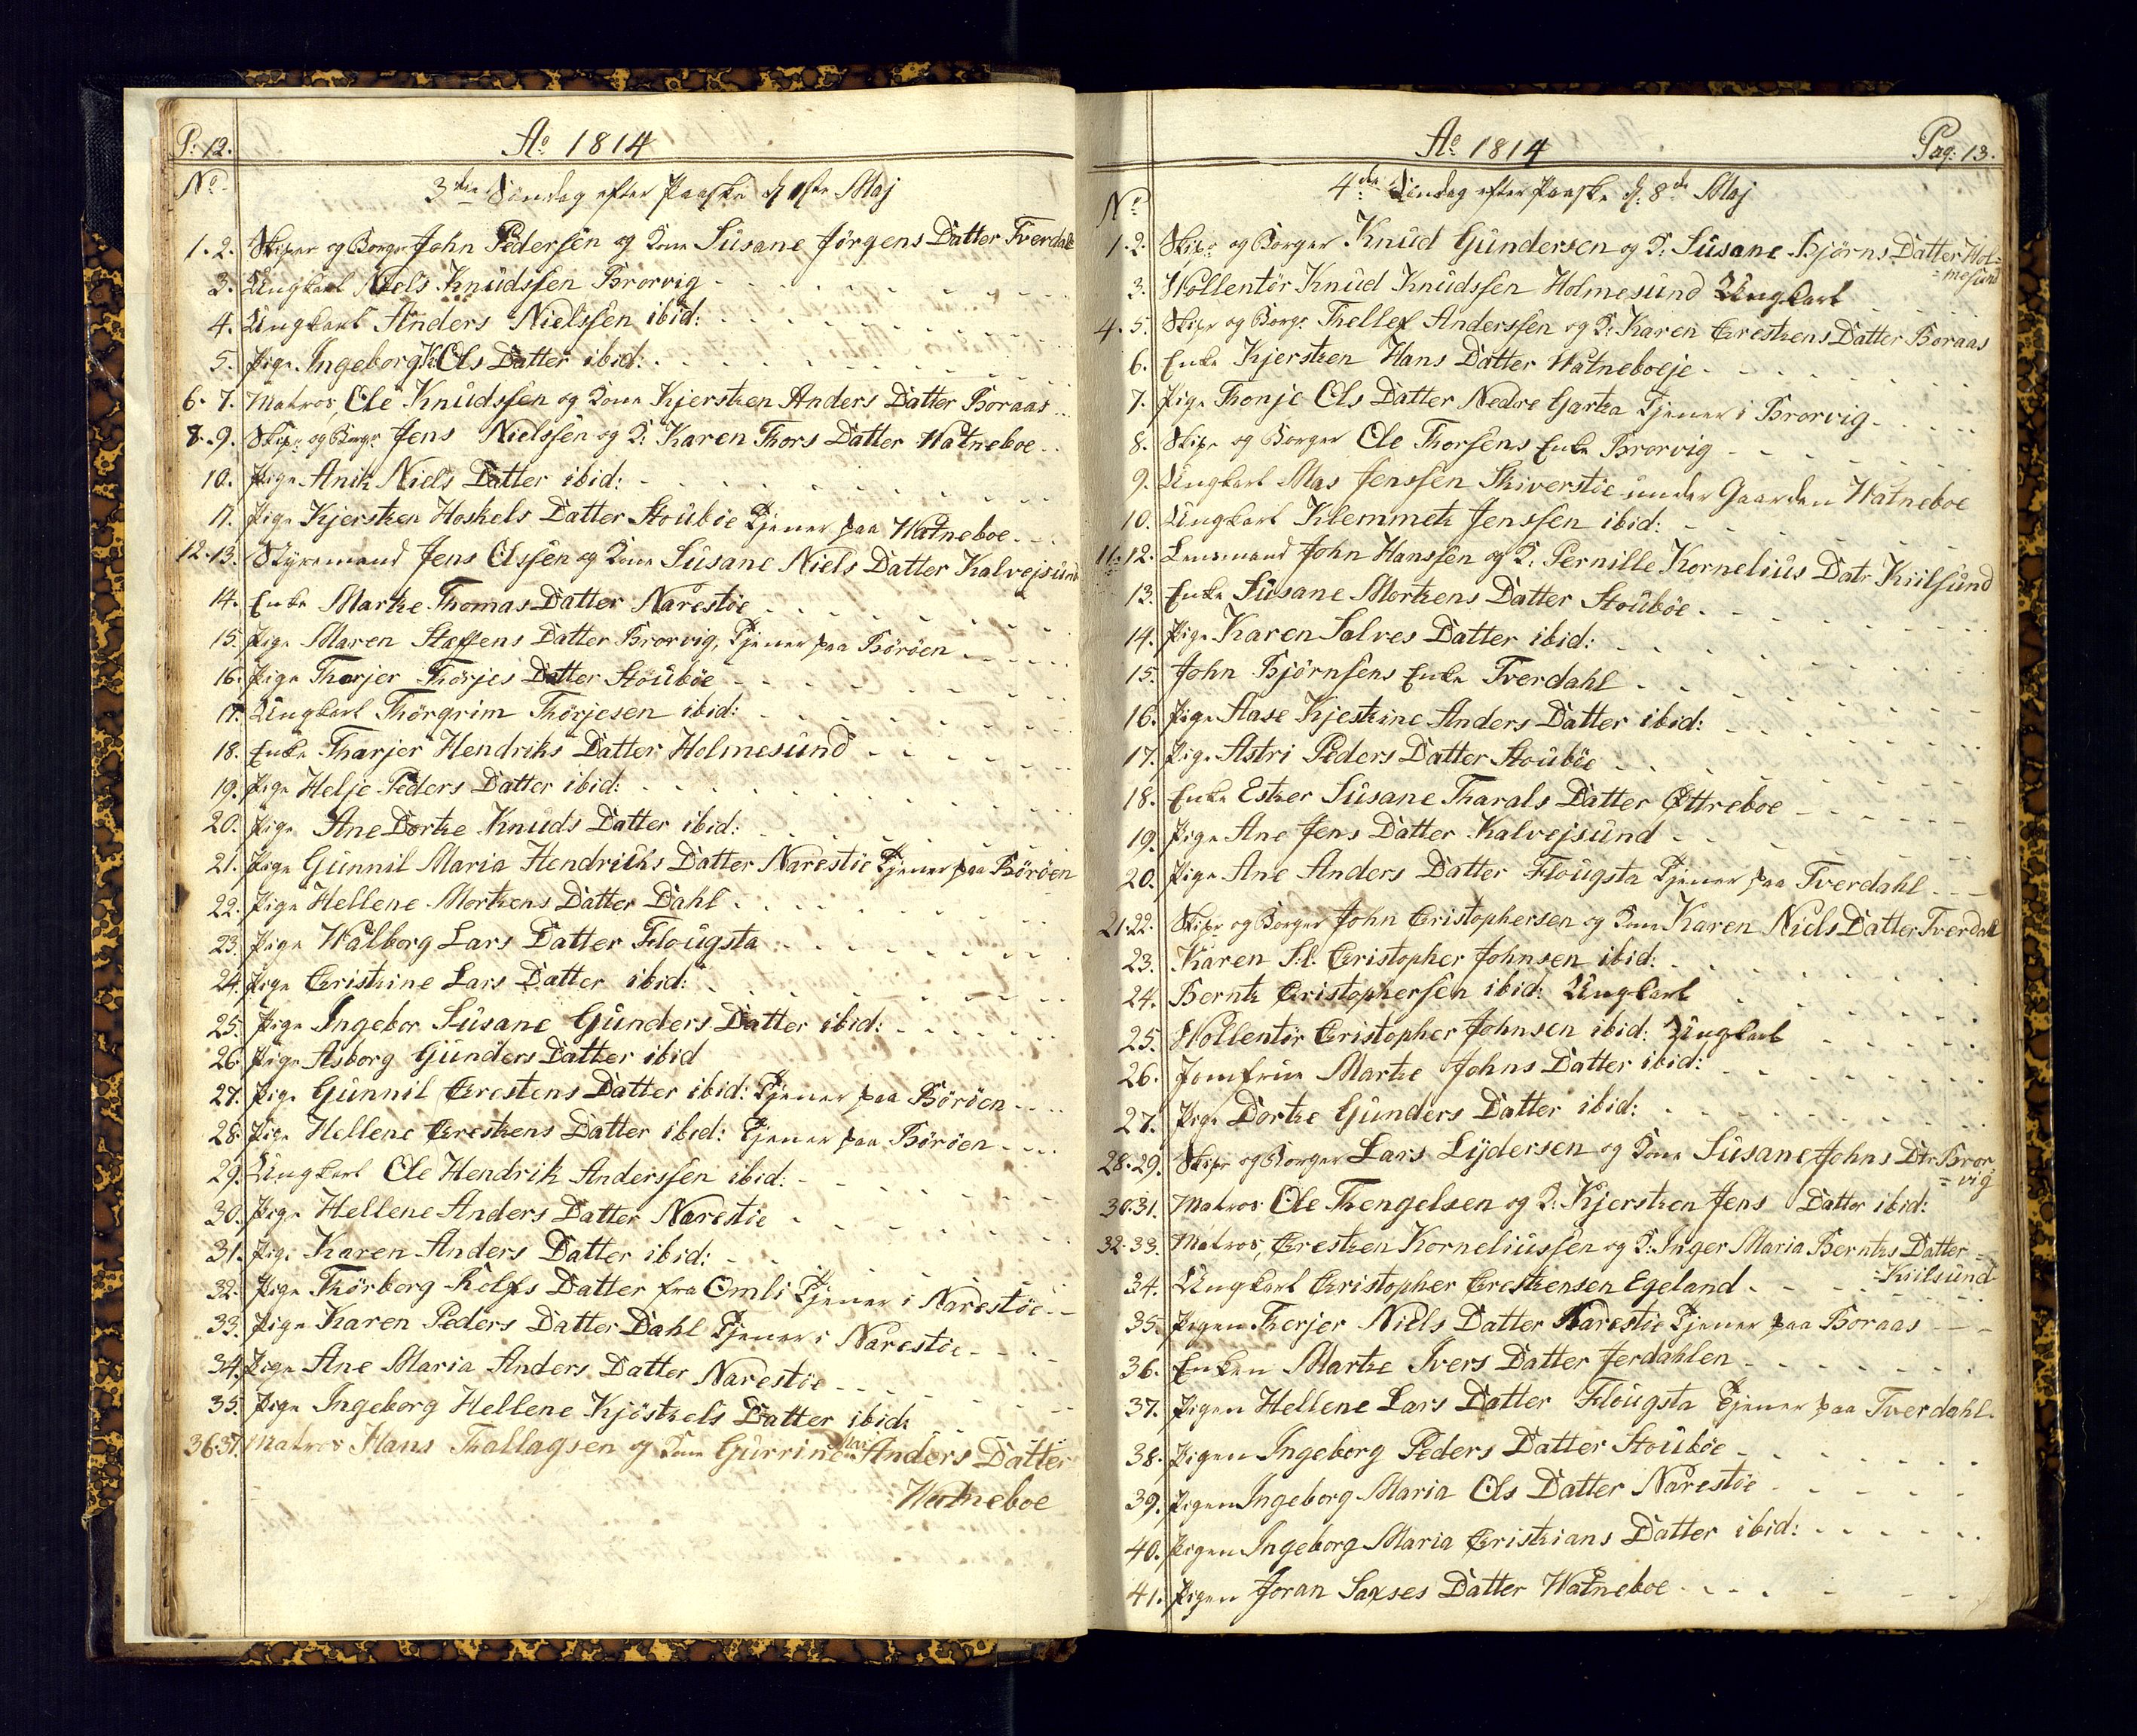 P: 12.
Ao 1814
No
3die Søndag efter Paaske d 1ste Maj
1. 2. Skiper og Borger John Pedersen og Kone Susane Jörgens Datter Tverdahl
3. Ungkarl Niels Knudssen Brorvig
4. Ungkarl Anders Nielssen ibid:
5. Pige Ingeborg K: Ols Datter ibid:
6. 7. Matros Ole Knudssen og Kone Kjersten Anders Datter Boraas
8. 9. Skipr og Borgr Jens Nielssen og K: Karen Thors Datter Watneboe
10. Pige Anik Niels Datter ibid:
11. Pige Kjersten Hoskels Datter Stouböe Tjener paa Watneboe
12. 13. Styremand Jens Olssen og Kone Susane Niels Datter Kalvejsund
14. Enke Marthe Thomas Datter Narestöe
15. Pige Maren Staffens Datter Brorvig, Tjener paa Böröen
16. Pige Thorjer Thörjes Datter Stouböe
17. Ungkarl Thörgrim Thörjesen ibid:
18. Enke Tharjer Hendriks Datter Holmesund
19. Pige Helje Peders Datter ibid:
20. Pige Ane Dorthe Knuds Datter ibid:
21. Pige Gunnil Maria Hendrichs Datter Narestöe Tjener paa Böröen
22. Pige Hellene Mortens Datter Dahl
23. Pige Walborg Lars Datter Flougsta
24. Pige Cristine Lars Datter ibid:
25. Pige Ingebor Susane Gunders Datter ibid:
26. Pige Asborg Gunders Datter ibid
27. Pige Gunnil Crestens Datter ibid: Tjener paa Böröen
28. Pige Hellene Crestens Datter ibid: Tjener paa Böröen
29. Ungkarl Ole Hendrik Anderssen ibid:
30. Pige Hellene Anders Datter Narestöe
31. Pige Karen Anders Datter ibid:
32. Pige Thörborg Rolfs Datter fra Omli Tjener i Narestöe
33. Pige Karen Peders Datter Dahl Tjener i Narestöe
34. Pige Ane Maria Anders Datter Narestöe
35. Pige Ingeborg Hellene Kjöstels Datter ibid:
36 37. Matros Hans Thallagsen og Kone Gurrine Anders Datter
Watneboe
Ao 1814
Pag: 13.
No
4de Søndag efter Paaske d. 8de Maj
1. 2. Skipr og Borger Knud Gundersen og K: Susane Björns Datter Hol=
=mesund
3. Wollentör Knud Knudssen Holmesund Ungkarl
4. 5. Skipr og Borgr Thellef Anderssen og K: Karen Crestens Datter Boraas
6. Enke Kjersten Hans Datter Watneboeje
7. Pige Thonje Ols Datter Nedre Garta Tjener i Brorvig
8. Skipr og Borger Ole Thorsens Enke Brorvig
9. Ungkarl Mas Jenssen Skiverstöe under Gaarden Watneboe
10. Ungkarl Klemmet Jenssen ibid:
11. 12. Lensmand John Hanssen og K: Pernille Kornelius Datr Kiilsund
13. Enke Susane Mortens Datter Stouböe
14. Pige Karen Salves Datter ibid:
15. John Björnsens Enke Tverdahl
16. Pige Aase Kjestine Anders Datter ibid:
17. Pige Astri Peders Datter Stouböe
18. Enke Ester Susane Tharals Datter Ottreboe
19. Pige Ane Jens Datter Kalvejsund
20. Pige Ane Anders Datter Flougsta Tjener paa Tverdahl
21. 22. Skipr og Borger John Cristophersen og Kone Karen Niels Datter Tverdahl
23. Karen Sl. Cristopher Johnsen ibid:
24. Bernt Cristophersen ibid: Ungkarl
25. Wollentör Cristopher Johnsen ibid: Ungkarl
26. Jomfrue Marthe Johns Datter ibid:
27. Pige Dorthe Gunders Datter ibid:
28. 29. Skipr og Borger Lars Lydersen og Kone Susane Johns Dtr Bror=
=vig
30. 31. Matros Ole Thengelsen og K: Kjersten Jens Datter ibid:
32. 33. Matros Cresten Korneliussen og K: Inger Maria Bernts Datter
=Kiilsund
34. Ungkarl Cristopher Crestensen Egeland
35. Pigen Therjer Niels Datter Narestöe Tjener paa Boraas
36. Enken Marthe Ivers Datter Jerdahlen
37. Pigen Hellene Lars Datter Flougsta Tjener paa Tverdahl
38. Pigen Ingeborg Peders Datter Stouböe
39. Pigen Ingeborg Maria Ols Datter Narestöe
40. Pigen Ingeborg Maria Cristians Datter ibid:
41. Pigen Joran Saxses Datter Watneboe